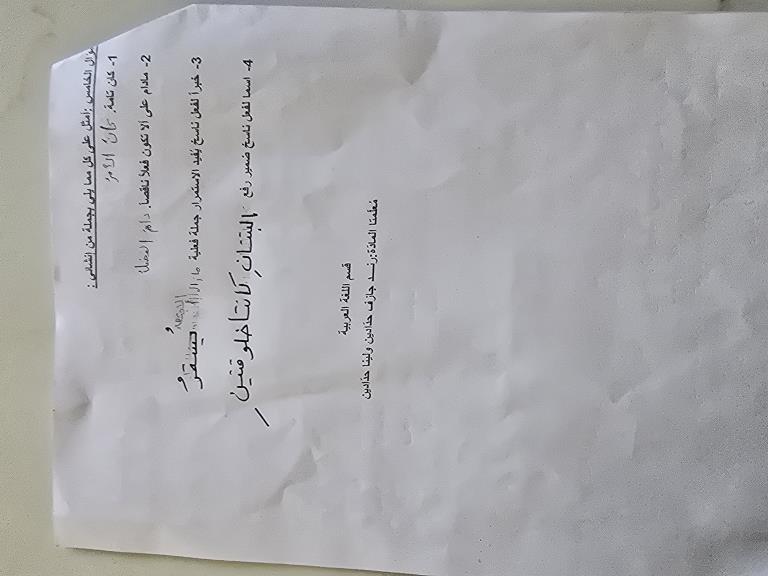 سؤال الخامس :أمثل على كل مما يلي بجملة من إنشائي :
1- كان تامة. كانَ الأمرُ
2- مادام على ألا تكون فعلاً ناقصاً. دام الفضل
3- خبراً لفعل ناسخ يفيد الاستمرار جملة فعلية ما زال يستقرُ
4- اسماً لفعل ناسخ ضمير رفع البنتانِ كانتا خلوقتينِ
قسم اللغة العربية
معلمتا المادة:رند جازف حدادين ولينا حدادين